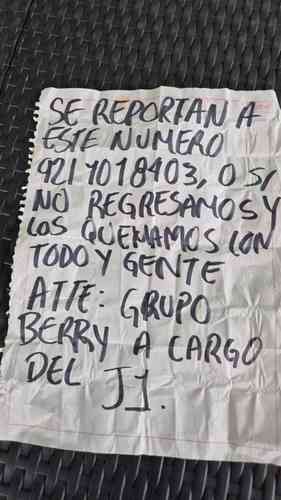 SE REPORTAN A
ESTE NUMERO
921 7018403, O SI
NO REGRESAMOS Y
LOS QUEMAMOS CON
TODO Y GENTE
ATTE: GRUPO
BERRY A CARGO
DEL J1.